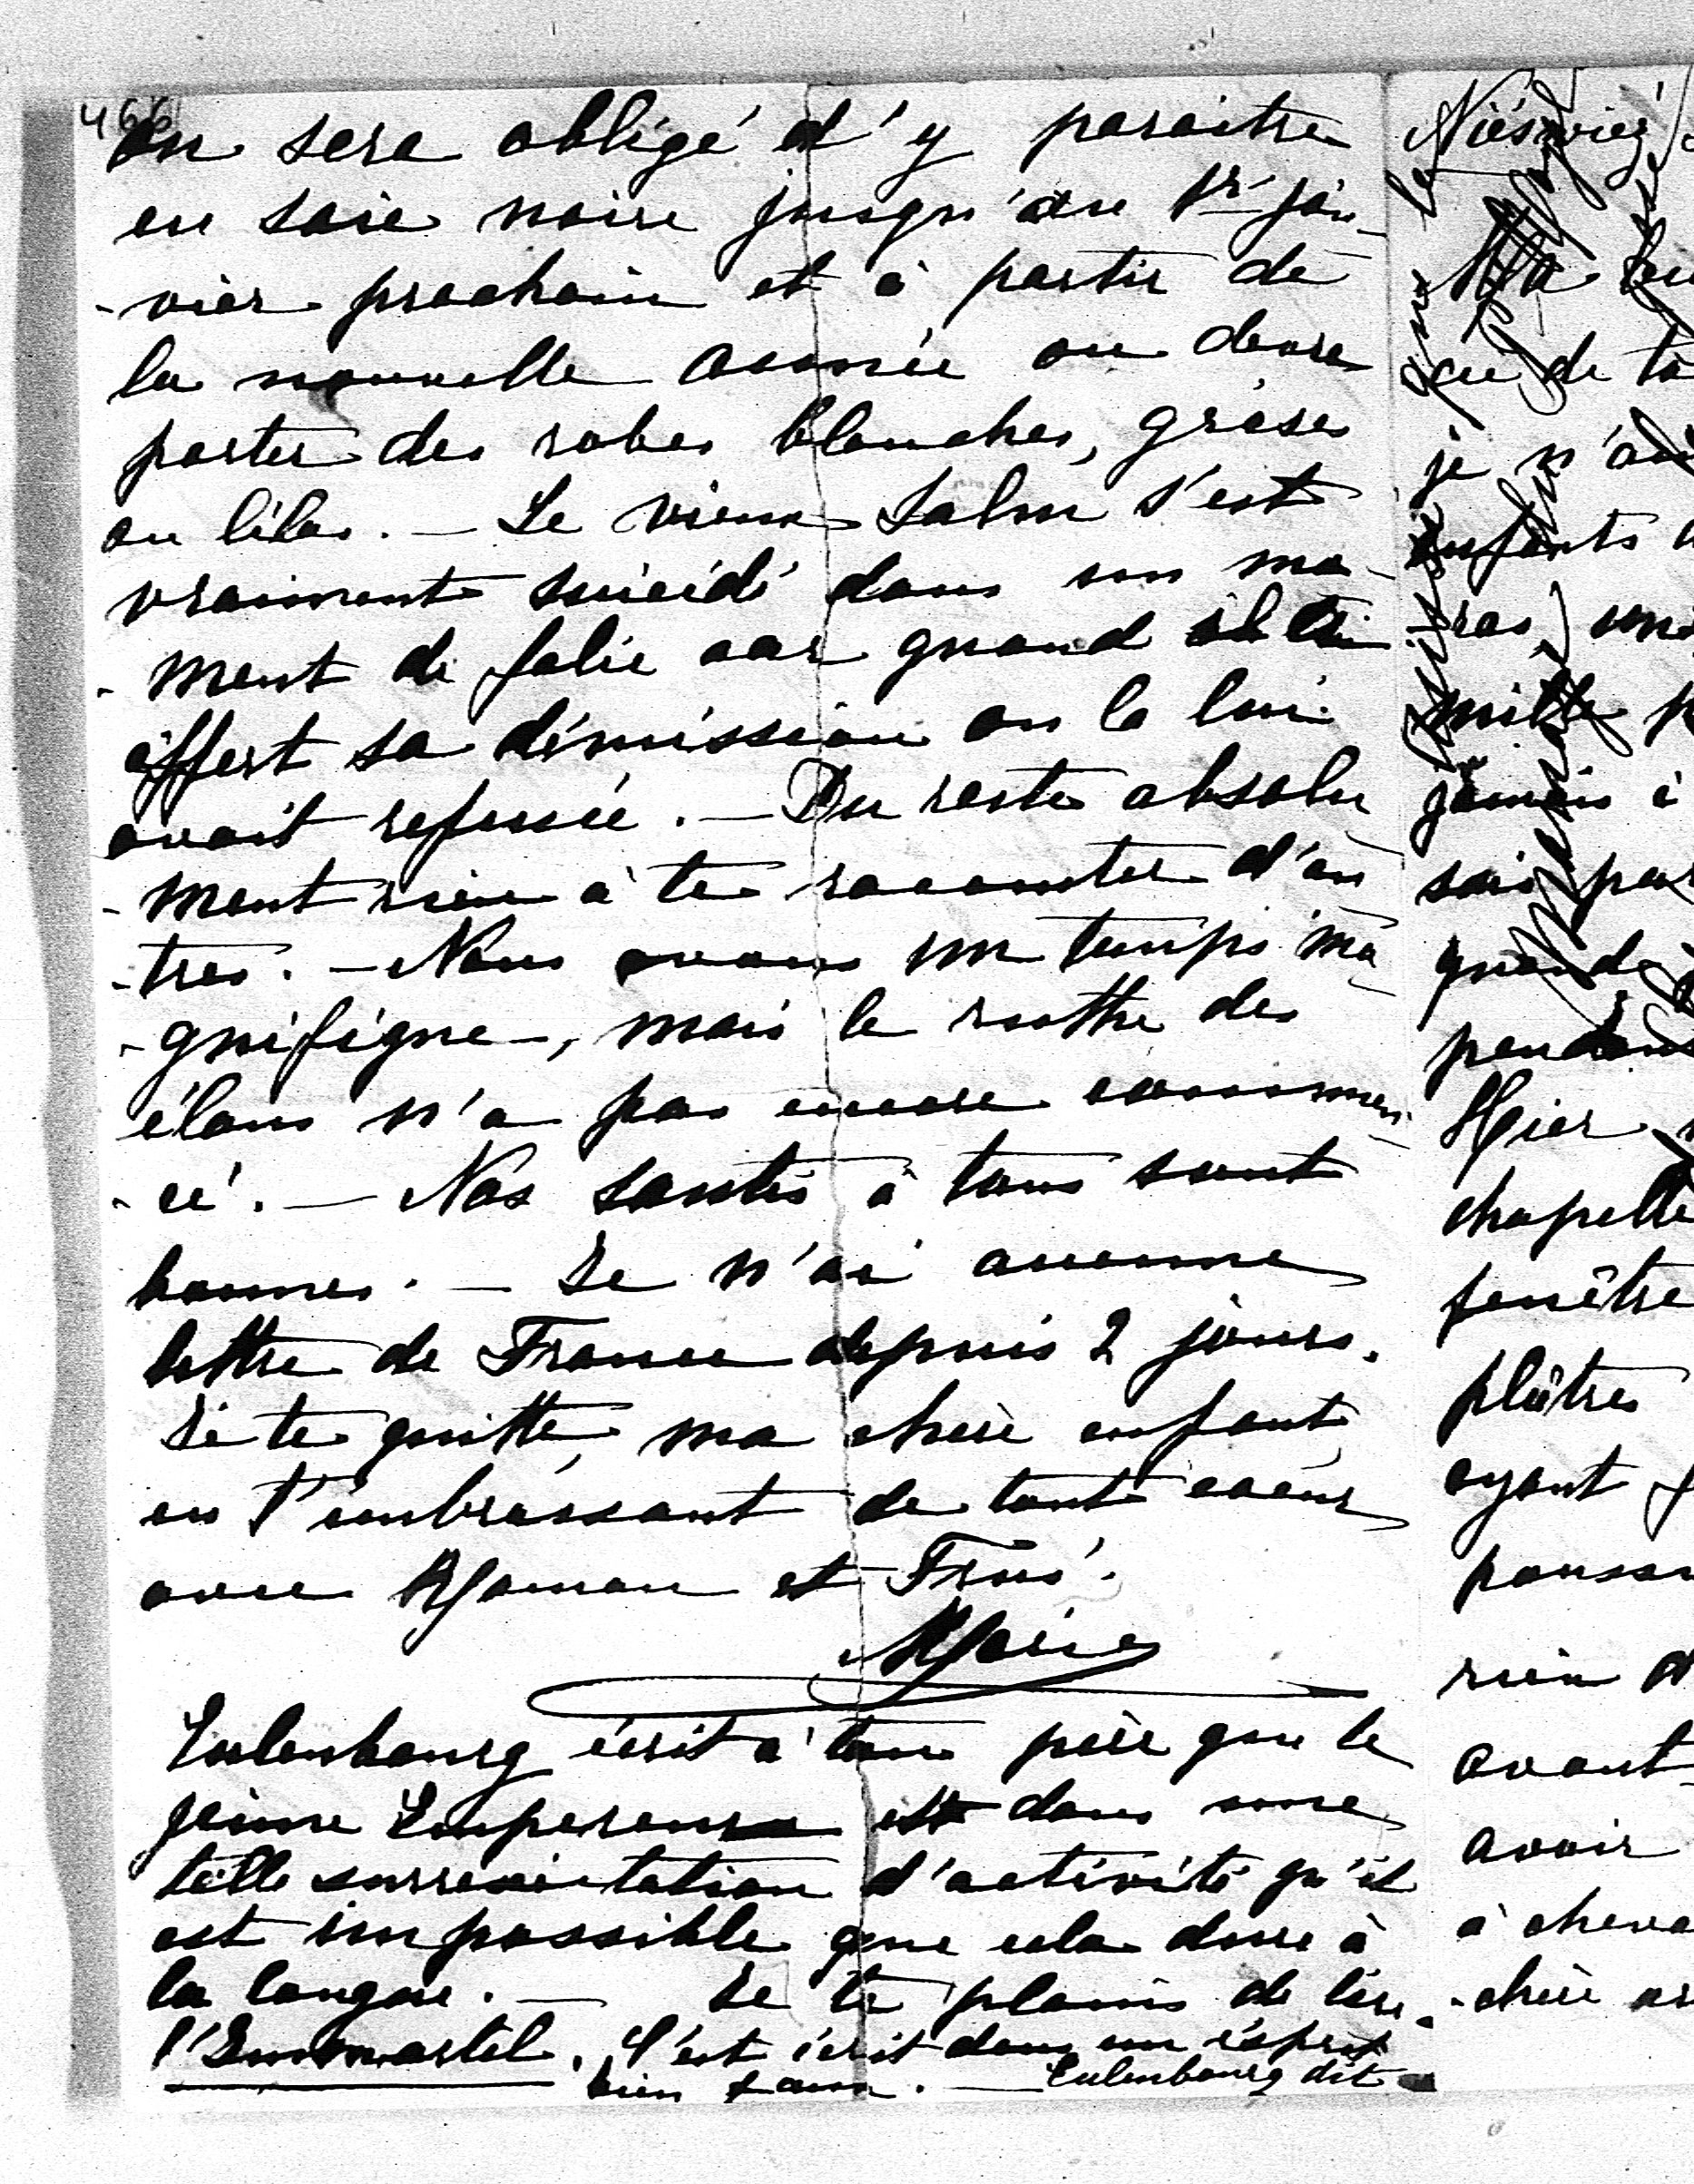 466
on sera obligé d'y paraitre
en soie noire jusqu'au 1r jan-
-vier prochain et à partir de
la nouvelle année on devra
porter des robes blanches, grises
ou lilas. — Le vieux Salm s'est
vraiment suicidé dans un mo-
-ment de folie car quand il a
offert sa démission on la lui
avait refusée. — Du reste absolu
-ment rien à te raconter d'au
-tres. — Nous avons un temps ma-
-gnifique, mais le rutthe des
élans n'a pas encore commen-
-cé. — Nos santés à tous sont
bonnes. — Je n'ai aucune
lettre de France depuis 2 jours.
Je te quitte, ma chère enfant
en t'embrassant de tout coeur
avec Maman et
Marie
Eulenbourg écrit à ton père que le
jeune Empereur est dans une
telle surrexcitation d'activité qu'il
est impossible que cela dure à
la longue. — Je te plains de lire
l'Immortel. C'est écrit dans un esprit
bien — Eulenbourg dit
Nieśwież
Ma
çu de ta
je n'ai
enfants
-ras,
mille
jamais
sais pas
grande
pendant
Hier
chapelle
fenêtre
plâtres
ayant
rien d
avant
avoir
à cheva
-chée